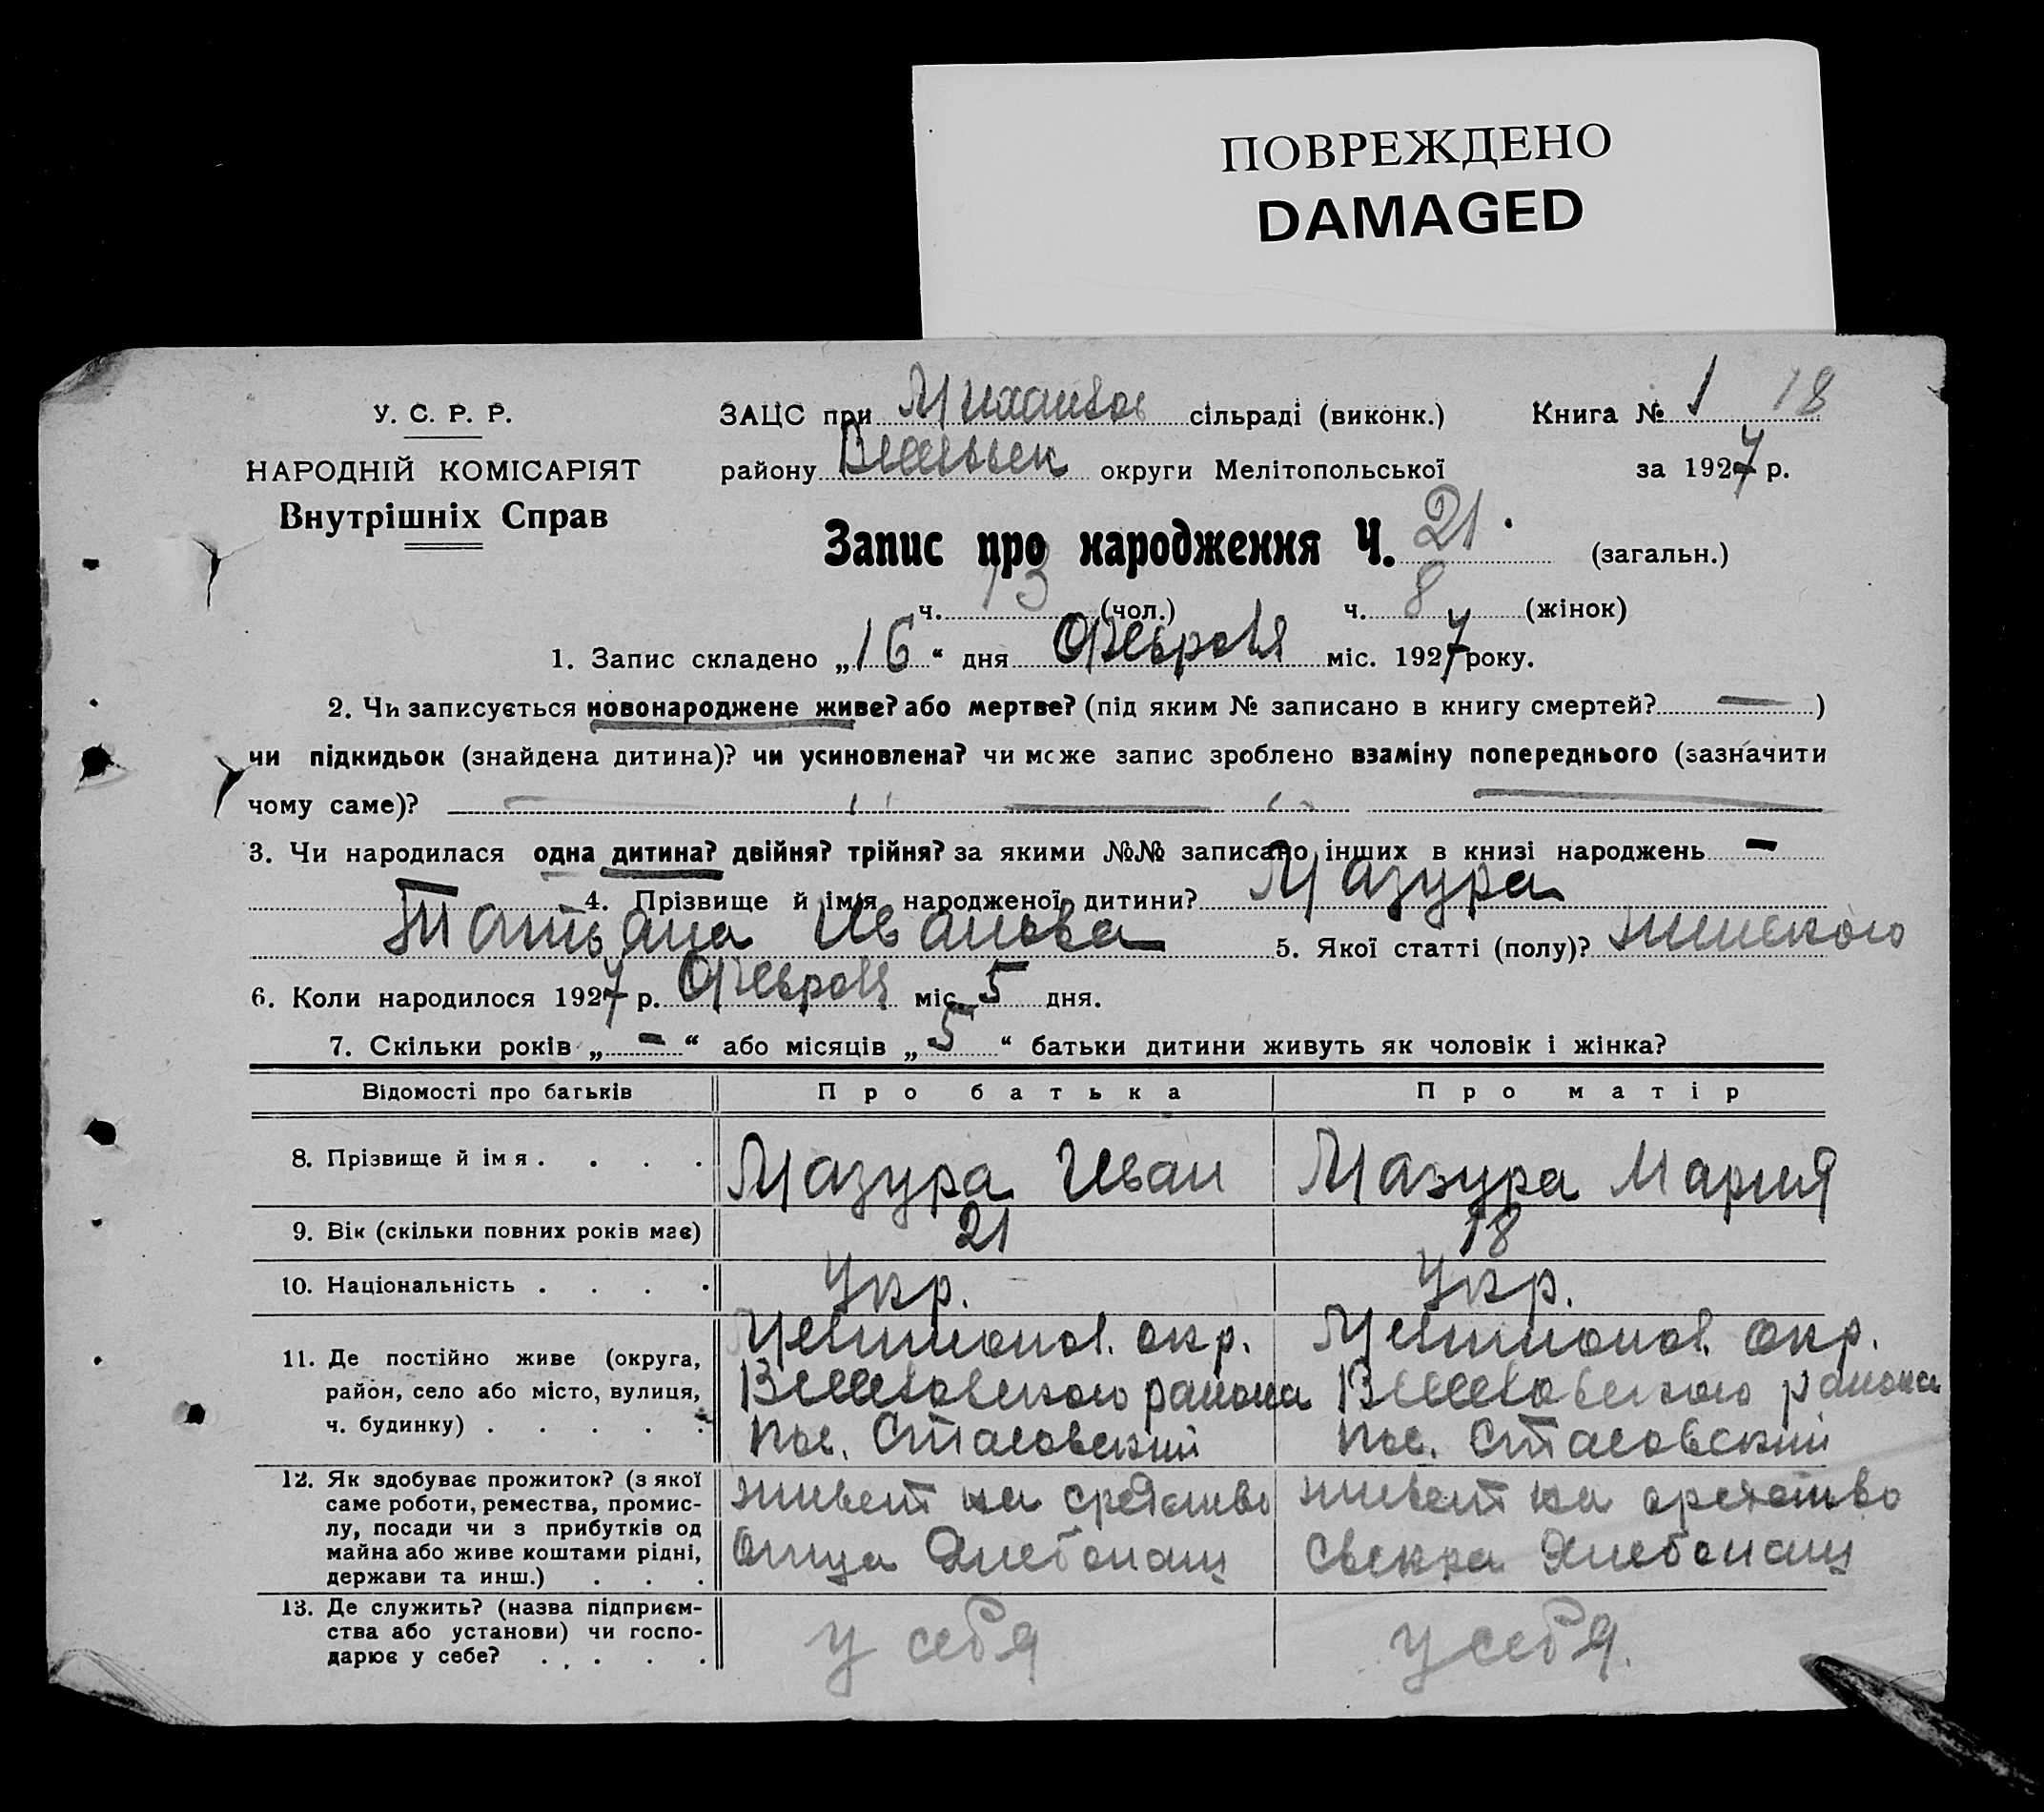 ПОВРЕЖДЕНО
DAMAGED
У. С. Р. Р.
НАРОДНІЙ КОМІСАРІЯТ
Внутрішніх Справ
ЗАЦС при Михайлов сільраді (виконк.) Книга № 1 18
району округи Мелітопольської за 1927 р.
Запис про народження Ч. 21 (загальн.)
ч. 13 (чол.) ч. 8 (жінок)
1. Запис складено „16“ дня Февраля міс. 1927 року.
2. Чи записується новонароджене живе? або мертве? (під яким № записано в книгу смертей? — )
чи підкидьок (знайдена дитина)? чи усиновлена? чи може запис зроблено взаміну попереднього (зазначити
чому саме)?
3. Чи народилася одна дитина? двійня? трійня? за якими №№ записано інших в книзі народжень —
4. Прізвище й імія народженої дитини? Мазура
Татьяна Иванова 5. Якої статті (полу)? женского
6. Коли народилося 1927 р. Февраля міс. 5 дня.
7. Скільки років „—“ або місяців „5“ батьки дитини живуть як чоловік і жінка?
Відомості про батьків Про батька Про матір
8. Прізвище й імя . . . . Мазура Иван Мазура Мария
9. Вік (скільки повних років має) 21 18
10. Національність . . . . Укр. Укр.
11. Де постійно живе (округа,
район, село або місто, вулиця,
ч. будинку) . . . . .
Мелитопол. окр.
Веселовского района
пос. Стасовский
Мелитопол. окр.
Веселовского района
пос. Стасовский
12. Як здобуває прожиток? (з якої
саме роботи, ремества, промис-
лу, посади чи з прибутків од
майна або живе коштами рідні,
держави та инш.) . . .
живет на средство
отца Хлебопащ
живет на средство
свекра Хлебопащ
13. Де служить? (назва підприєм-
ства або установи) чи госпо-
дарює у себе? . . . . .
у себя
у себя.